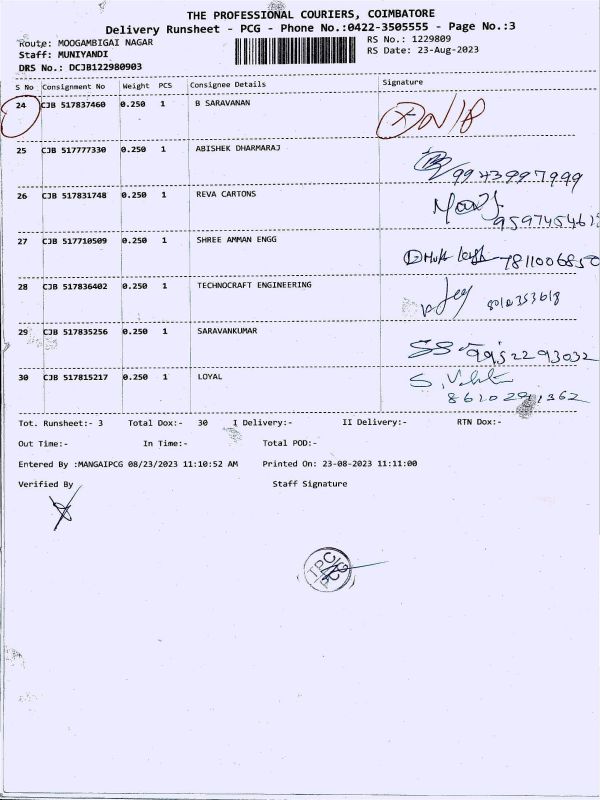 THE PROFESSIONAL COURIERS, COIMBATORE
Delivery Runsheet - PCG - Phone No.:0422-3505555 - Page No.:3
Route: MOOGAMBIGAI NAGAR RS No.: 1229809
Staff: MUNIYANDI RS Date: 23-Aug-2023
DRS No.: DCJB122980903
S No Consignment No Weight PCS Consignee Details Signature
24 CJB 517837460 0.250 1 B SARAVANAN
25 CJB 517777330 0.250 1 ABISHEK DHARMARAJ
9943997999
26 CJB 517831748 0.250 1 REVA CARTONS
27 CJB 517710509 0.250 1 SHREE AMMAN ENGG
7811006850
28 CJB 517836402 0.250 1 TECHNOCRAFT ENGINEERING
29 CJB 517835256 0.250 1 SARAVANKUMAR
9952293032
30 CJB 517815217 0.250 1 LOYAL
8610291362
Tot. Runsheet:- 3 Total Dox:- 30 I Delivery:- II Delivery:- RTN Dox:-
Out Time:- In Time:- Total POD:-
Entered By :MANGAIPCG 08/23/2023 11:10:52 AM Printed On: 23-08-2023 11:11:00
Verified By Staff Signature